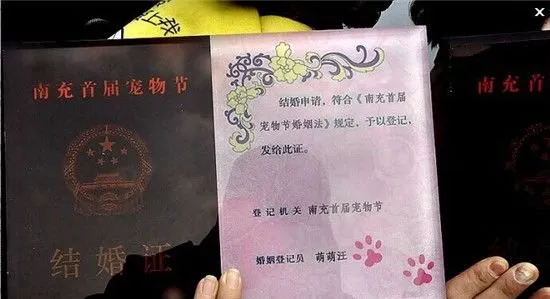 南充首届宠物节
结婚证
结婚申请，符合《南充首届
宠物节婚姻法》规定，予以登记，
发给此证。
登记机关 南充首届宠物节
婚姻登记员 萌萌汪